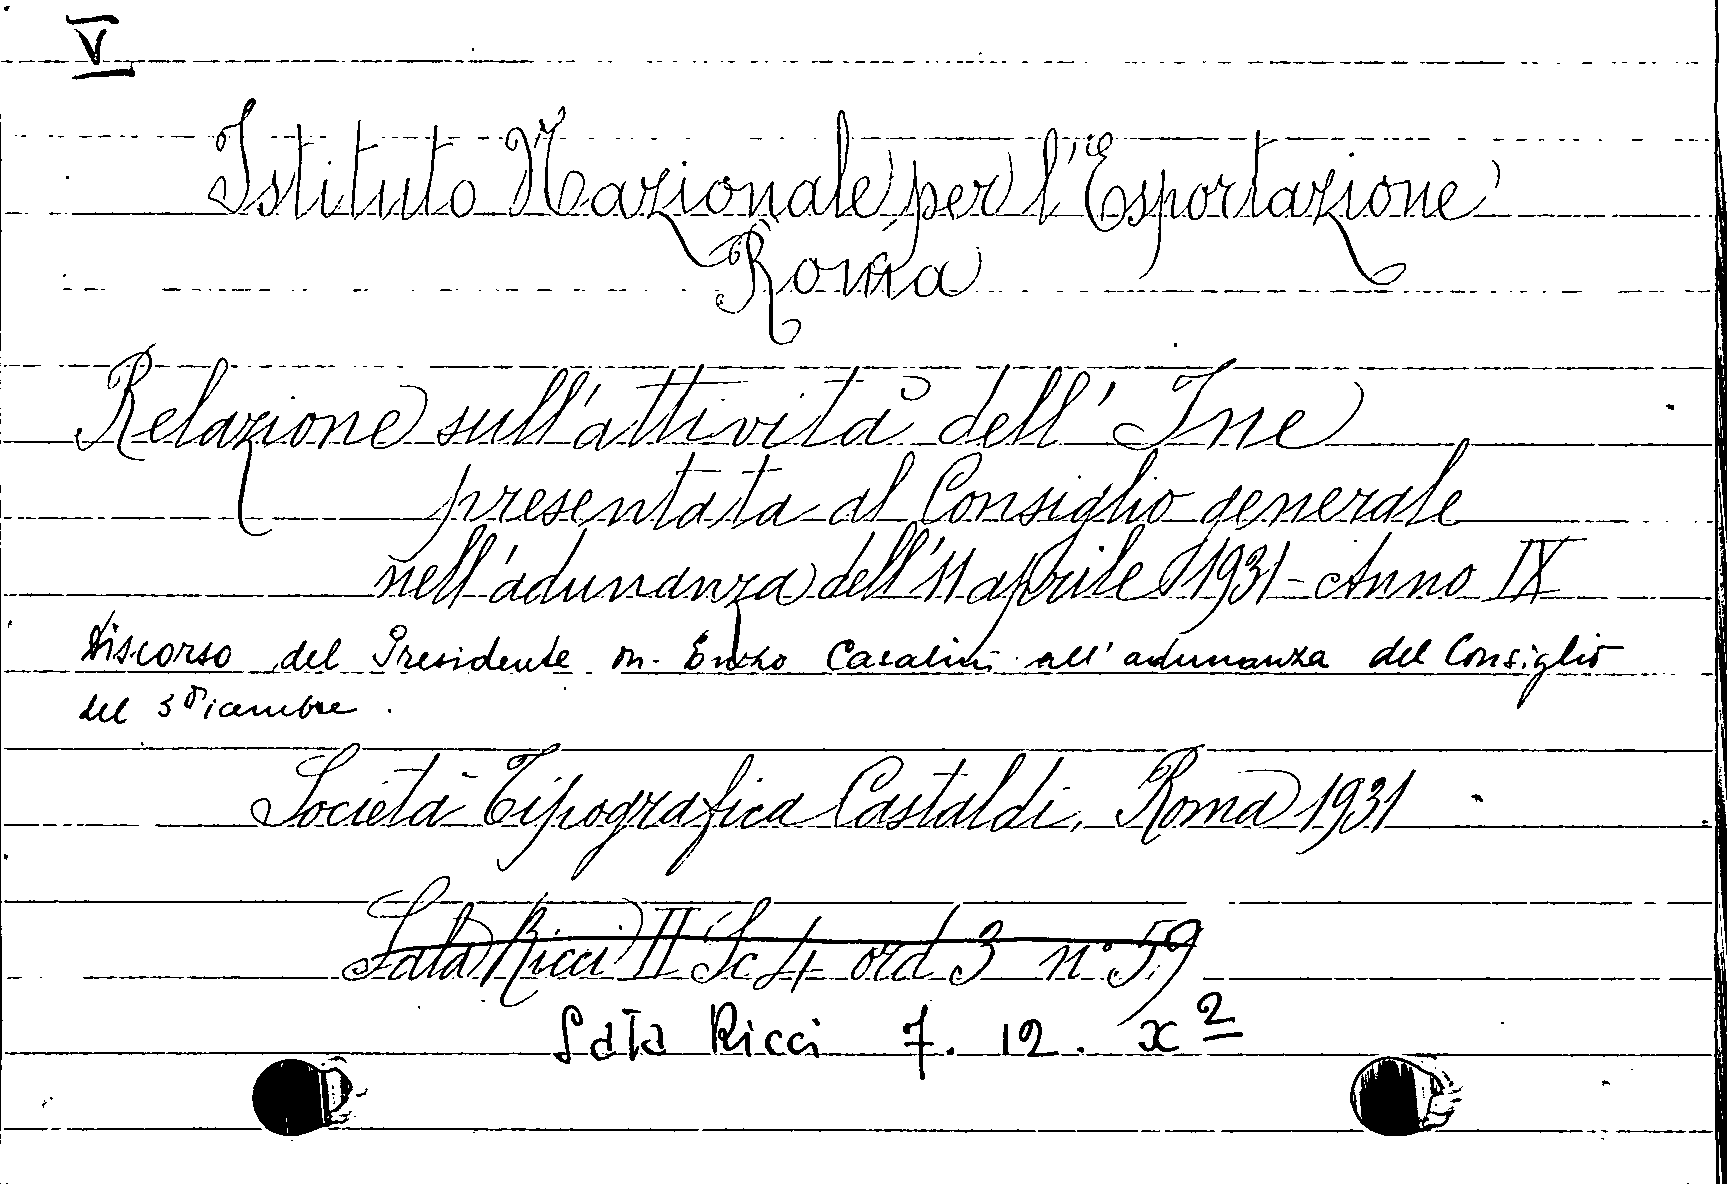 V
Istituto Nazionale per l'Esportazione
Roma
Relazione sull'attività dell' Ine
presentata al Consiglio generale
nell'adunanza dell'11 aprile 1931 - Anno IX
Discorso del Presidente on. Enzo Casalini all'adunanza del Consiglio
del 3 Dicembre.
Società Tipografica Castaldi, Roma 1931
Sala Ricci II Sc 4 ord 3 n° 59
Sala Ricci 7. 12. x 2